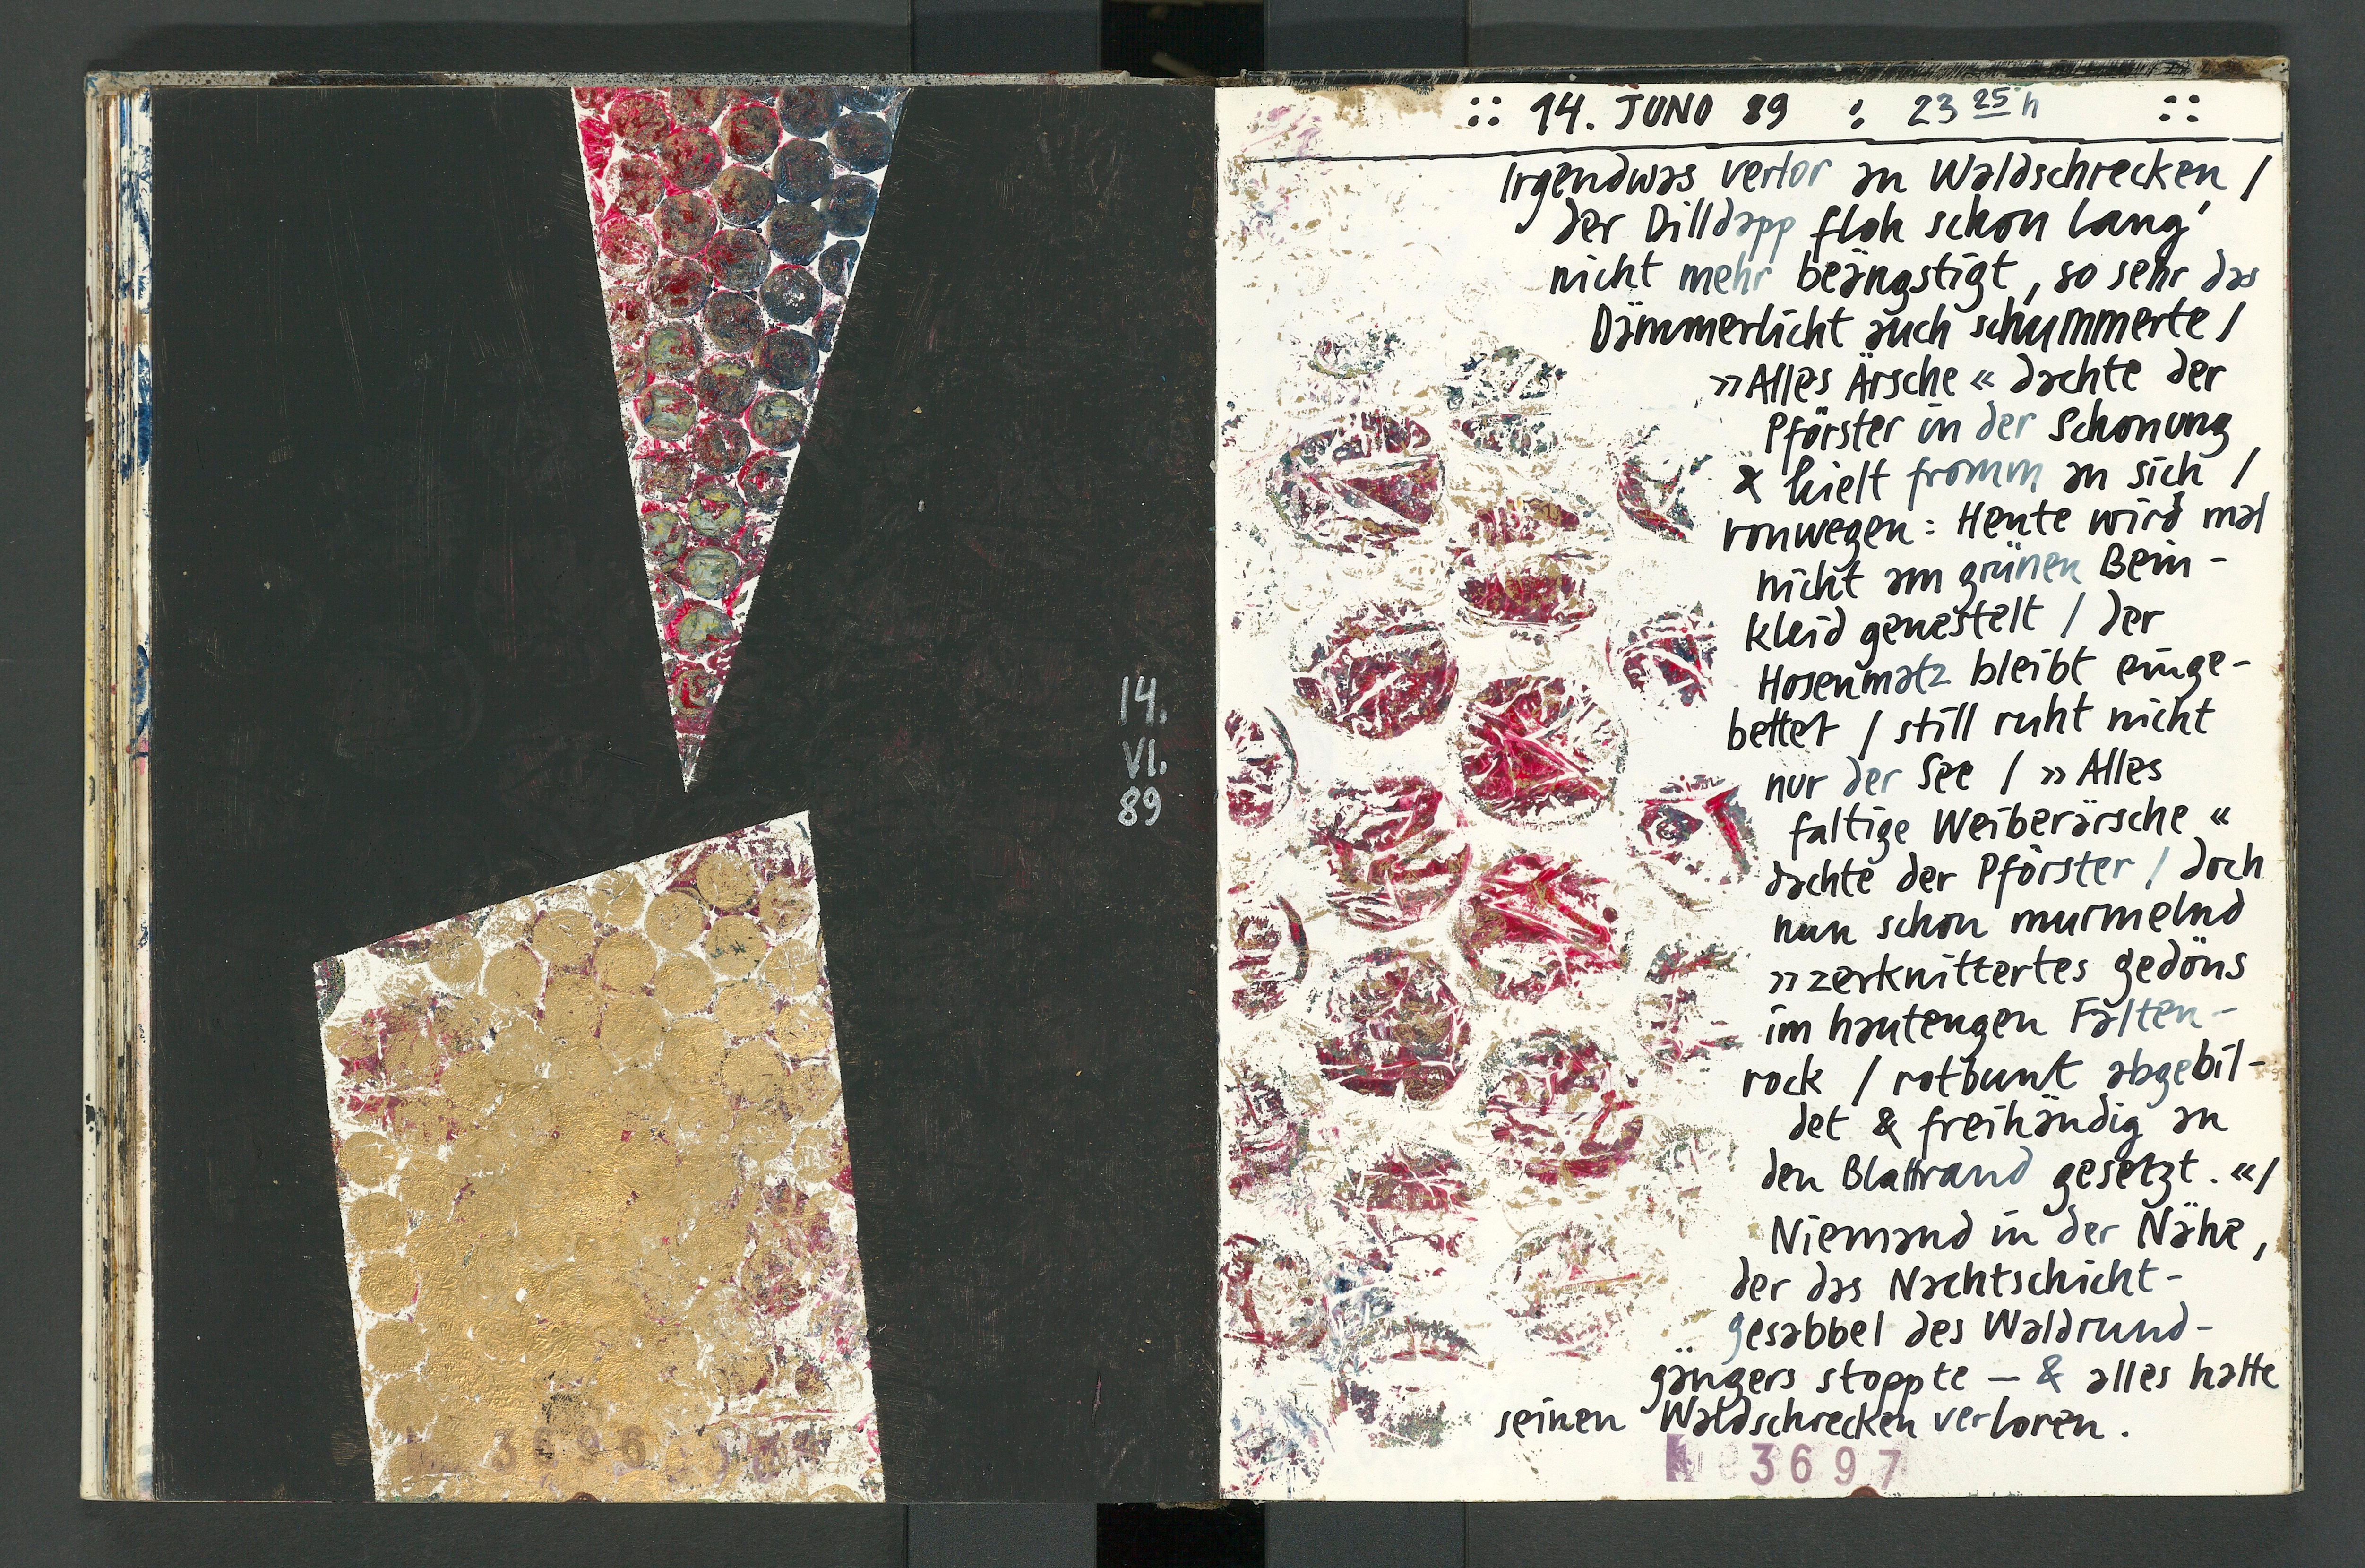 14.
VI.
89
3696
:: 14. JUNO 89 : 23 25 h ::
Irgendwas verlor an Waldschrecken, /
der Dilldapp floh schon lang'
nicht mehr beängstigt, so sehr das
Dämmerlicht auch schummerte /
»Alles Ärsche« dachte der
Pförster in der Schonung
& hielt fromm an sich /
vonwegen: Heute wird mal
nicht am grünen Bein-
kleid genestelt / der
Hosenmatz bleibt einge-
bettet / still ruht nicht
nur der See / »Alles
faltige Weiberärsche«
dachte der Pförster / doch
nun schon murmelnd
»zerknittertes gedöns
im hautengen Falten-
rock / rotbunt abgebil-
det & freihändig an
den Blattrand gesetzt.« /
Niemand in der Nähe,
der das Nachtschicht-
gesabbel des Waldrund-
gängers stoppte — & alles hatte
seinen Waldschrecken verloren.
3697